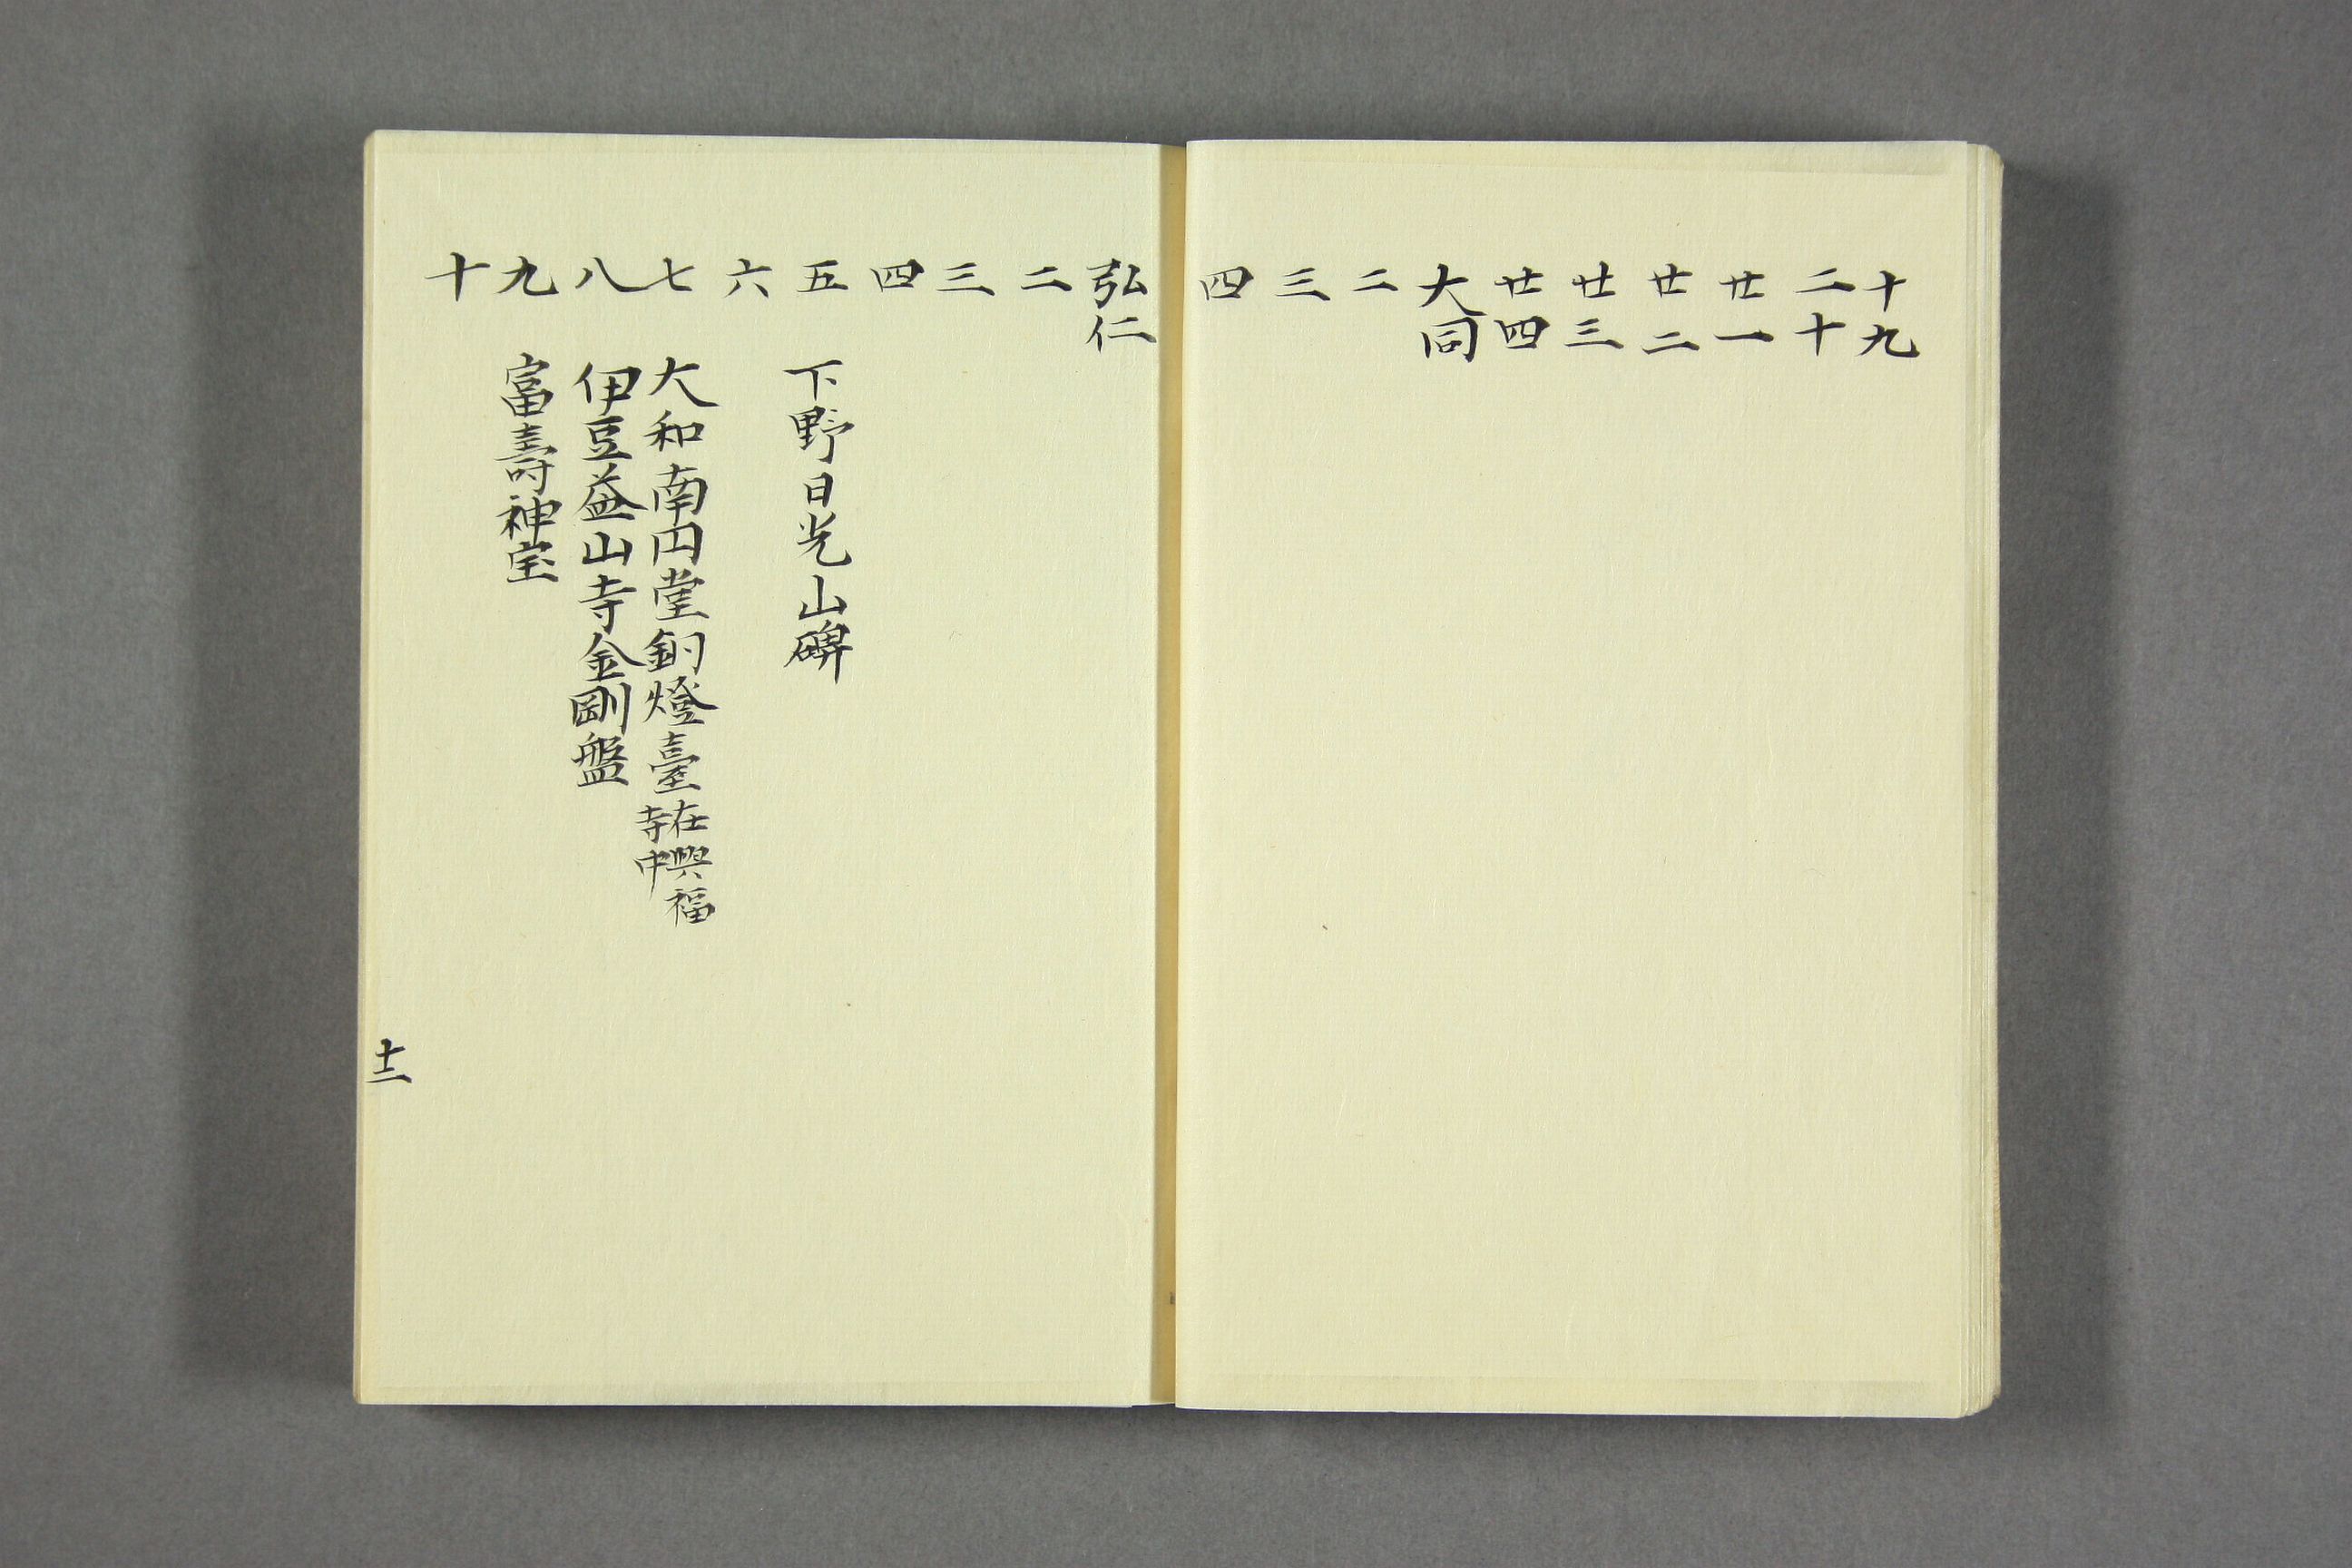 十九
二十
廿一
廿二
廿三
廿四
大同
二
三
四
弘仁
二
三
四
五 下野日光山碑
六
七 大和南円堂銅燈臺 在興福
寺中
八 伊豆益山寺金剛盤
九 富壽神宝
十
十二